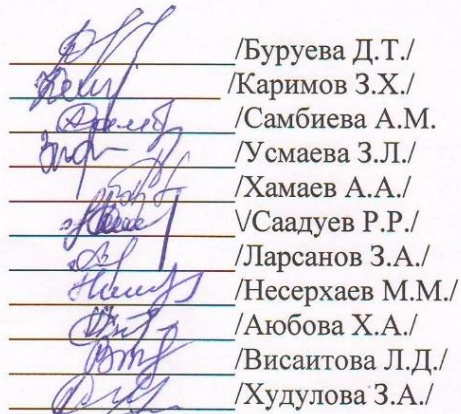 /Буруева Д.Т./
/Каримов З.Х./
/Самбиева А.М.
/Усмаева З.Л./
/Хамаев А.А./
\/Саадуев Р.Р./
/Ларсанов З.А./
/Несерхаев М.М./
/Аюбова Х.А./
/Висаитова Л.Д./
/Худулова З.А./